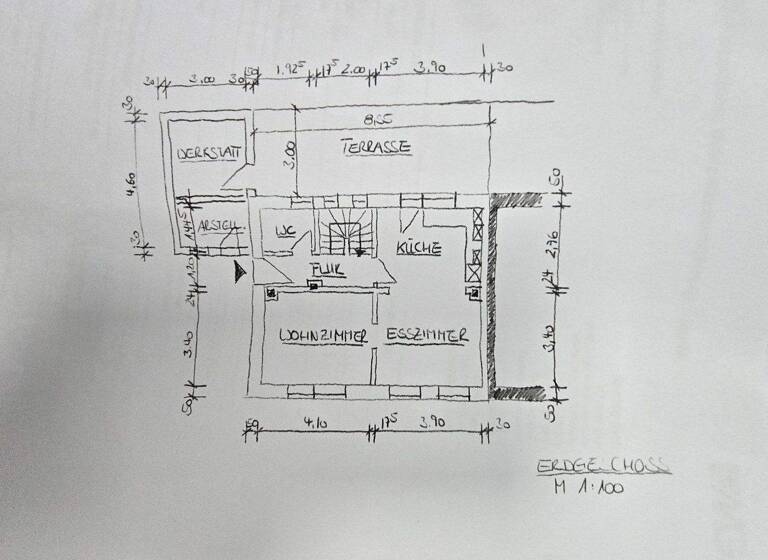 30 3.00 30 50 1.92⁵ 17⁵ 2.00 17⁵ 3.90 30
30
8,55
TERRASSE
3.00
WERKSTATT
4,60
50
1.44⁵
ABSTELL.
WC
KÜCHE
2,76
30
1.20
FLUR
24
24
WOHNZIMMER
ESSZIMMER
3.40
3,40
50
50
50 4.10 17⁵ 3.90 30
ERDGESCHOSS
M 1:100